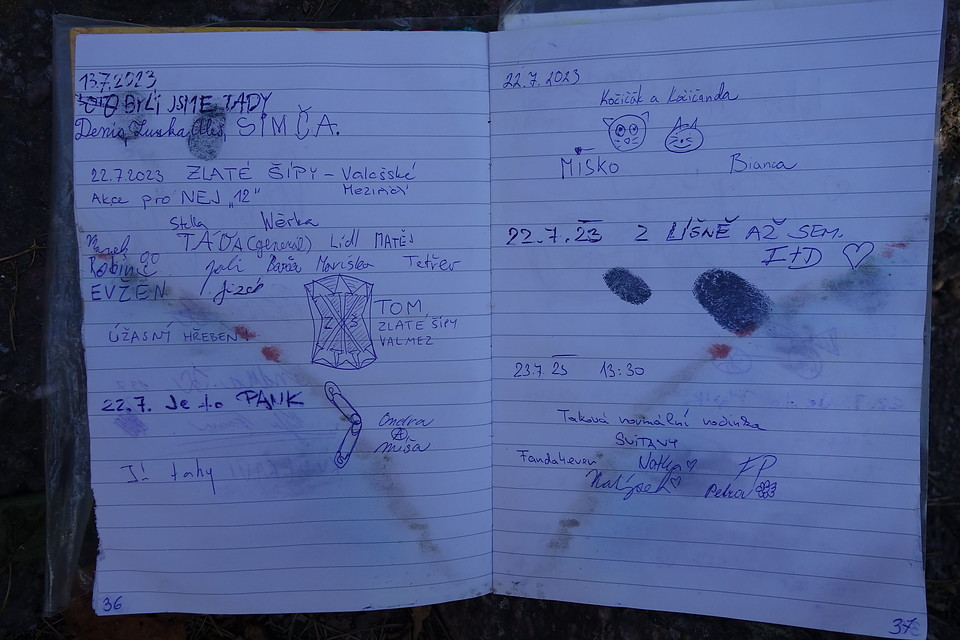 13.7.2023
BYLI JSME TADY
Denis, Zuzka, Aleš, SIMČA.
22.7.2023 ZLATÉ ŠÍPY - Valašské
Meziříčí
Akce pro NEJ „12"
Stella Wërka
TÁĎA (generál) Lídl MATĚJ
Marek
Robin
Jali Barča Maviska Tetřev
EVŽEN
ÚŽASNÍ HŘEBEN
TOM
Z 3
ZLATÉ ŠÍPY
VALMEZ
22.7. Je to PANK
Ondra
A
Míša
J! tahy
36
22.7.2023
Kočičák a Kočičanda
MÍŠKO Bianca
22.7.23 Z LÍŠNĚ AŽ SEM.
I+D ♡
23.7.23 13:30
Taková normální rodinka
SVITAVY
Natka ♡ FP
Petra
37